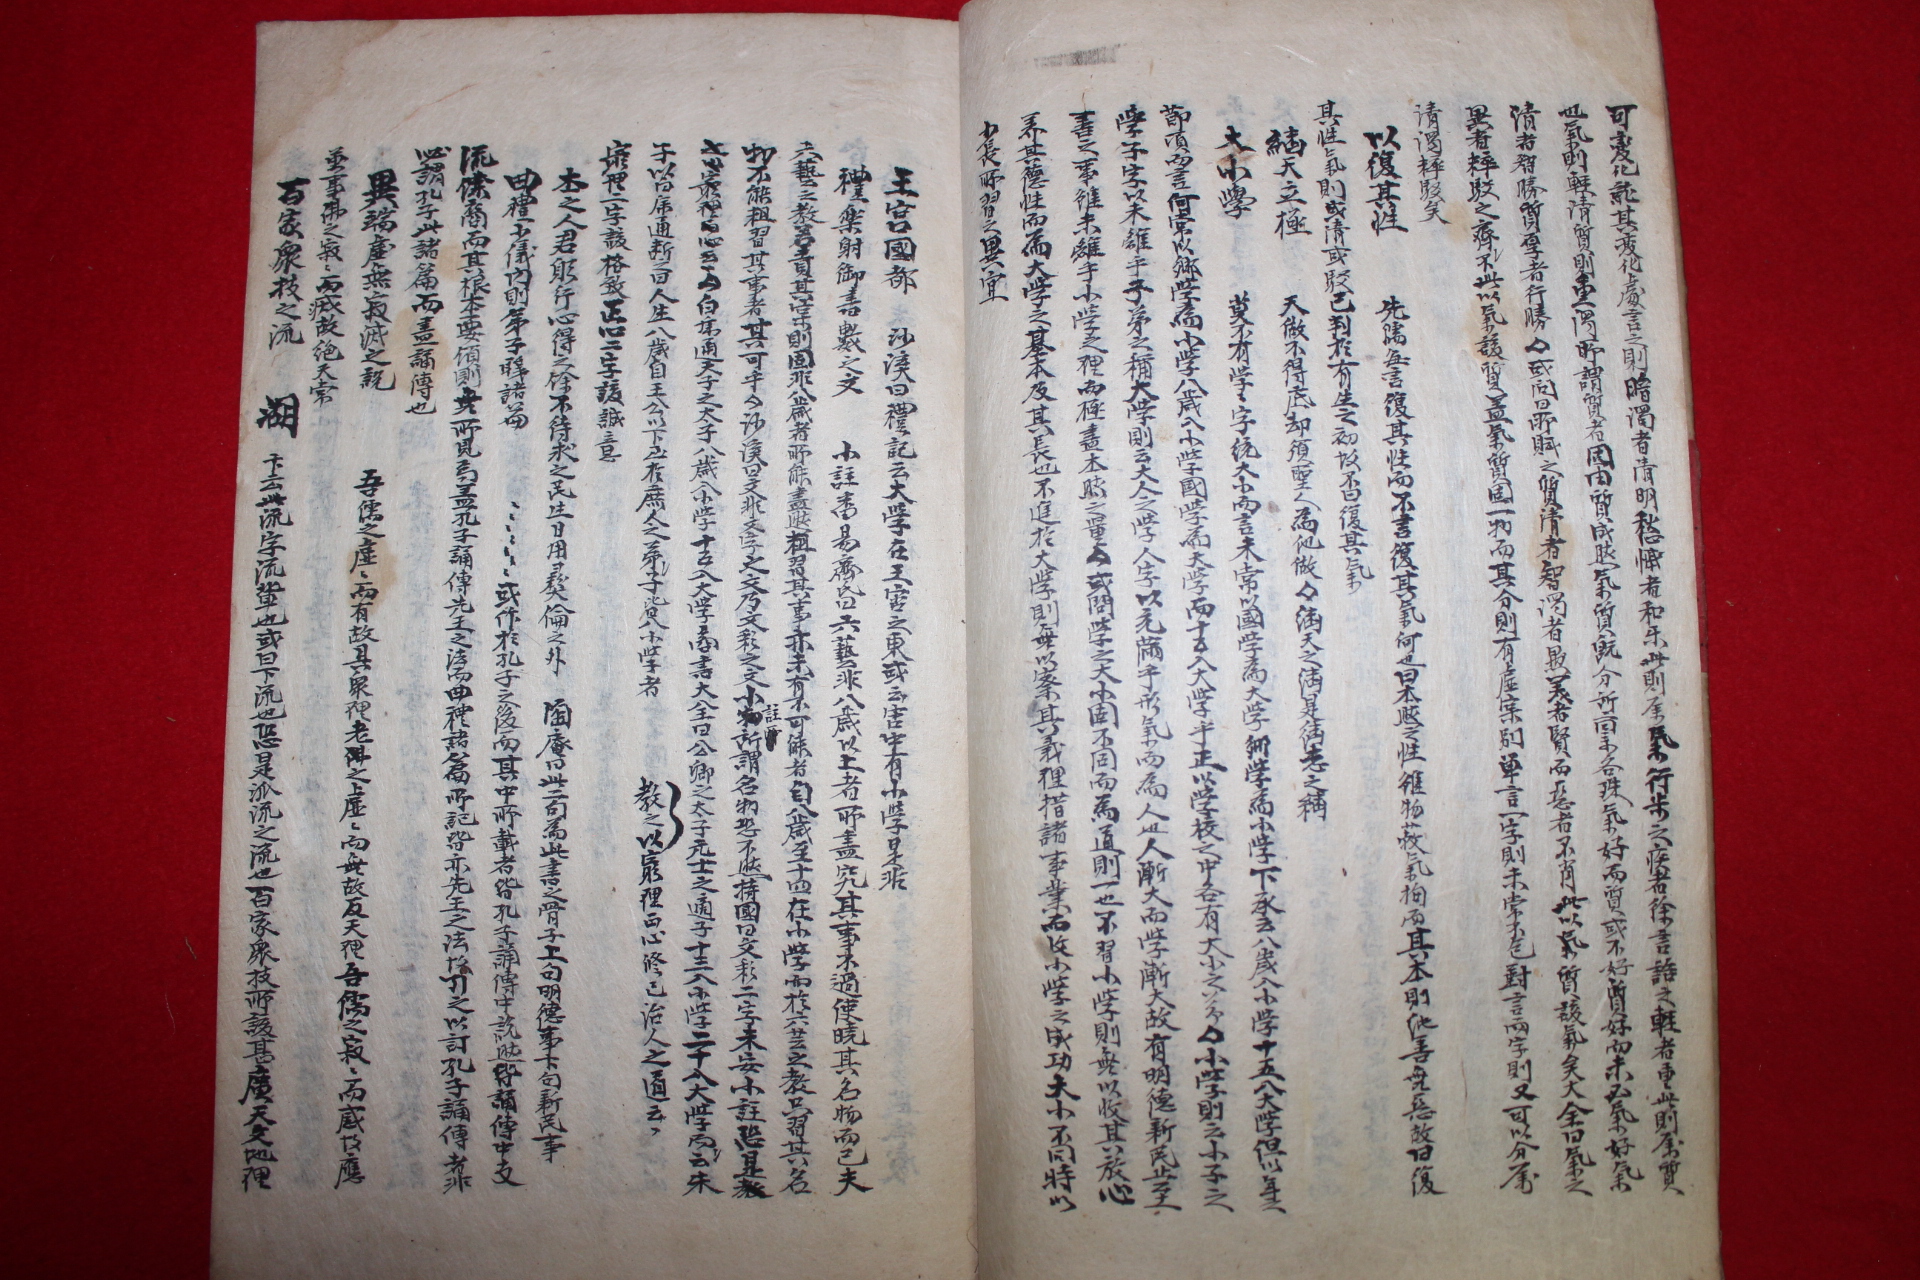 可變化就其變化處言之則暗濁者淸明愁惧者和乐此則屬氣行步之疾者徐言語之輕者重此則屬質
也氣則輕淸質則重濁所謂質者固因質成然氣質旣分所自来各殊氣好而質或不好質好而未必氣好氣
淸者智勝質厚者行勝々或問曰所賦之質淸者智濁者愚美者賢而惡者不肖此以氣質該氣矣大全曰氣之
異者粹駁之齊不此以氣該質盖氣質固一物而其分則有虛宲別單言一字則未常不包對言两字則又可以分屬
淸濁粹駁矣
以復其性 先儒每言復其性而不言復其氣何也曰本然之性雖物蔽氣拘而其本則純善無惡故曰復
其性氣則或淸或駁已判於有生之初故不曰復其氣
継天立極 天做不得底却須聖人為他做々継天之継是継志之稱
大小學 莫不有學々字統大小而言未常以國學為大學鄉學為小學下承云八歲入小學十五入大學但以年云
節項而言何常以鄉學為小學八歲入小學國學為大學而十五入大學乎正以學校之中各有大小之分々小學則云小子之
學子字以未離乎子弟之稱大學則云大人之學人字以充滿乎形氣而為人也人漸大而學漸大故有明德新民止至
善之事雖未離乎小學之理而極盡本然之量々或問學之大小固不同而為道則一也不習小學則無以收其放心
养其德性而為大學之基本及其長也不進於大學則無以察其義理措諸事業而收小學之成功大小不同時以
少長所習之異宜
王宮國都 沙溪曰禮記云大學在王宮之東或云宮中有小學是非
禮樂射御書數之文 小註番易齊氏曰六藝非八歲以上者所盡究其事不過使曉其名物而已夫
六藝之教若責其宲則固非八歲者所能盡然粗習其事亦未有不可能者自八歲至十四在小學而於六艺之教只習其名
物不能粗習其事者其可乎々沙溪曰文非文字之文乃文彩之文小註所謂名物恐不然持國曰文彩二字未安小註恐是教
之以窮理正心云々白虎通天子之太子八歲入小學十五入大學尙書大全曰公卿之太子元士之適子十三入小學二十入大學而云朱
子以白虎通断之曰人生八歲自王公以下至於庶人之弟子皆入小學者 教之以窮理正心修己治人之道云々
窮理二字該格致正心二字該誠意
本之人君躬行心得之餘不待求之民生日用彛倫之外 陶庵曰此二句為此書之骨子上句明德事下句新民事
曲禮少儀內則弟子職諸篇 、、、、、或作於孔子之後而其中所載者皆孔子誦傳中說然皆誦傳中支
流餘裔而其根本要領則無所見焉盖孔子誦傳先王之法而曲禮諸篇所記皆亦先王之法故引之以訂孔子誦傳者非
必謂孔子此諸篇而盡誦傳也
異端虛無寂滅之說 吾儒之虛々而有故具衆理老佛之虛々而無故反天理吾儒之寂々而感故應
萬事佛之寂々而滅故絶天常
百家衆技之流 湖 下云此流字流輩也或曰下流也恐是派流之流也百家衆技所該甚廣天文地理